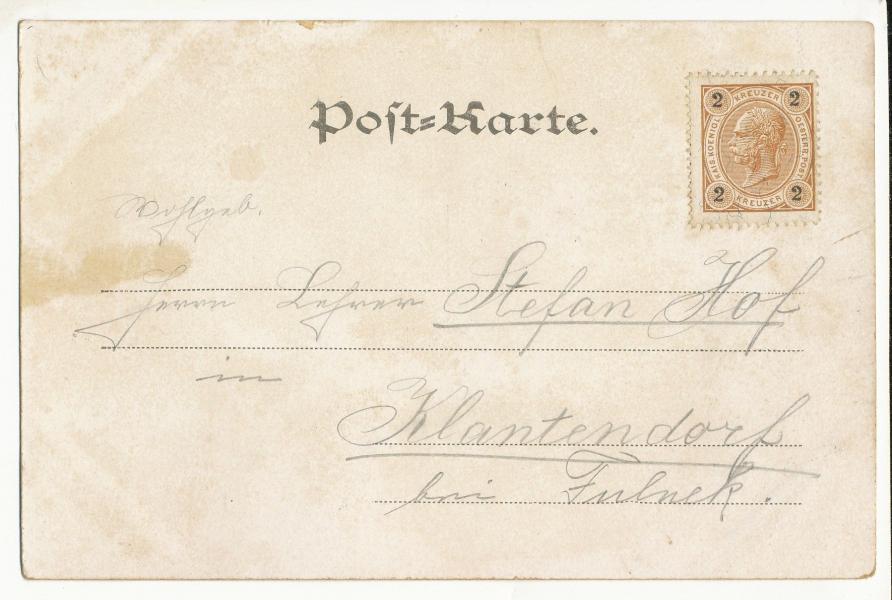 Post-Karte.
2 KREUZER 2
KAIS. KOENIGL. OESTERR. POST
2 KREUZER 2
Wohlgeb.
Herrn Lehrer Stefan Hof
in
Klantendorf
bei Fulnek.